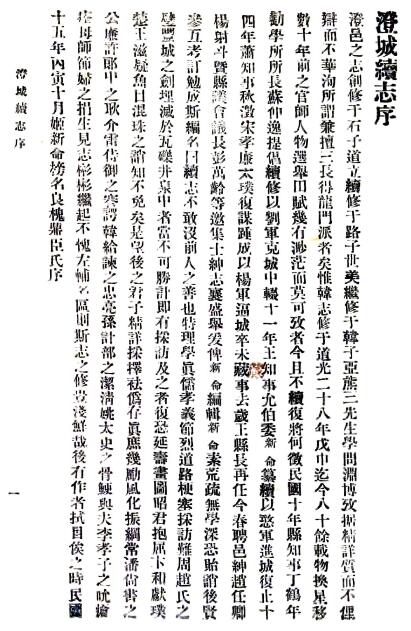 澄城續志序
澄邑之志創修于石子道立續修于路子世美繼修于韓子亞熊三先生學問淵博攷据精詳質而不俚
辯而不華洵所謂兼擅三長得龍門派者矣惟韓志修于道光二十八年戊申迄今八十餘載物換星移
數十年前之官師人物選舉田賦幾有渺茫而莫可攷者今且不續復將何徵民國十年縣知事丁鶴年
勸學所所長蘇仲逸提倡續修以劉軍克城中輟十一年王知事允伯委新命纂續以憨軍進城復止十
四年蕭知事秋澂宋孝廉太璞復謀踵成以楊軍逼城卒未蕆事去歲王縣長再任今春聘邑紳趙任卿
楊射斗暨縣議會議長彭萬齡等邀集士紳志襄盛舉爰俾新命編輯新命素荒疏無學深恐貽誚後賢
參互考訂勉成斯編名曰續志不敢沒前人之善也特理學眞儒孝義節烈道路梗塞採訪難周趙氏之
璧豐城之劍埋滅於瓦礫井泉中者當不可勝計即有採訪及之者復恐延壽畫圖昭君抱屈卞和獻璞
楚王滋疑魚目混珠之誚知不免矣是望後之君子精詳採擇祛僞存眞庶幾勵風化振綱常潘尚書之
公廉許郎中之耿介雷侍御之謇諤韓給諫之忠亮孫計部之潔清姚太史之骨鯁與夫李孝子之吮瘡
母師節婦之捐生見志彬彬繼起不愧左輔名區則斯志之修豈淺鮮哉後有作者拭目俟之時民國
十五年丙寅十月姬新命榜名良槐鼎臣氏序
澄城續志序
一